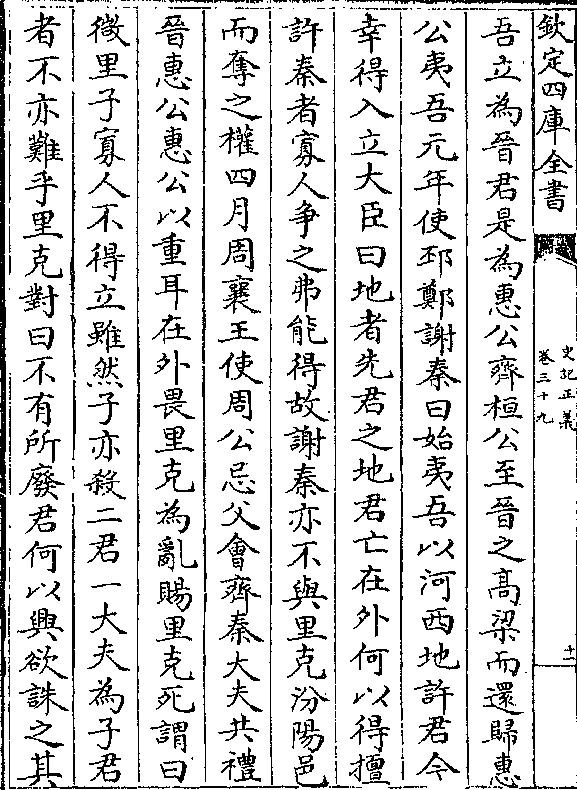 欽定四庫全書
史記正義
卷三十九
十一
吾立為晉君是為惠公齊桓公至晉之髙梁而還歸惠
公夷吾元年使邳鄭謝秦曰始夷吾以河西地許君今
幸得入立大臣曰地者先君之地君亡在外何以得擅
許秦者寡人争之弗能得故謝秦亦不與里克汾陽邑
而奪之權四月周襄王使周公忌父會齊秦大夫共禮
晉惠公惠公以重耳在外畏里克為亂賜里克死謂曰
微里子寡人不得立雖然子亦殺二君一大夫為子君
者不亦難乎里克對曰不有所廢君何以興欲誅之其